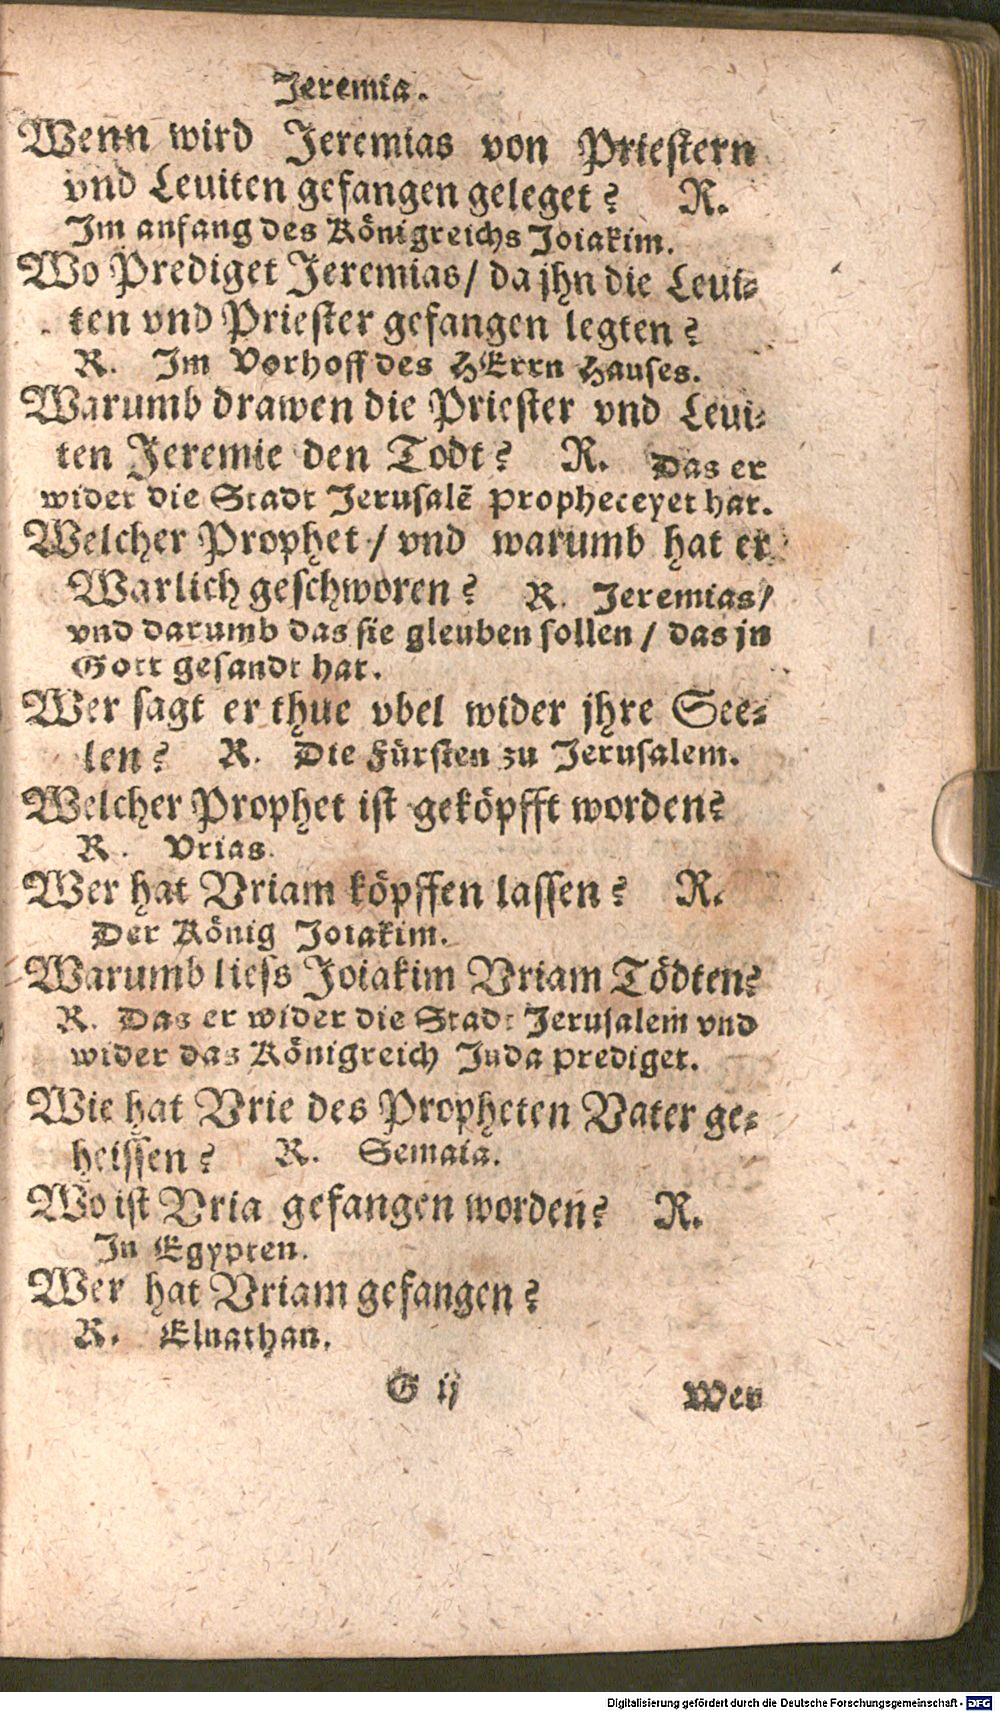 Jeremia.
Wenn wird Jeremias von Priestern
vnd Leuiten gefangen geleget? R.
Im anfang des Königreichs Joiakim.
Wo Prediget Jeremias/ da jhn die Leui-
ten vnd Priester gefangen legten?
R. Im Vorhoff des HErrn Hauses.
Warumb drawen die Priester vnd Leui-
ten Jeremie den Todt? R. Das er
wider die Stadt Jerusalē propheceyet hat.
Welcher Prophet / vnd warumb hat er
Warlich geschworen? R. Jeremias/
vnd darumb das sie gleuben sollen / das jn
Gott gesandt hat.
Wer sagt er thue vbel wider jhre See-
len? R. Die Fürsten zu Jerusalem.
Welcher Prophet ist geköpfft worden?
R. Vrias.
Wer hat Vriam köpffen lassen? R.
Der König Joiakim.
Warumb liess Joiakim Vriam Tödten?
R. Das er wider die Stadt Jerusalem vnd
wider das Königreich Juda prediget.
Wie hat Vrie des Propheten Vater ge-
heissen? R. Semaia.
Wo ist Vria gefangen worden? R.
In Egypten.
Wer hat Vriam gefangen?
R. Elnathan.
G ij Wer
Digitalisierung gefördert durch die Deutsche Forschungsgemeinschaft - DFG